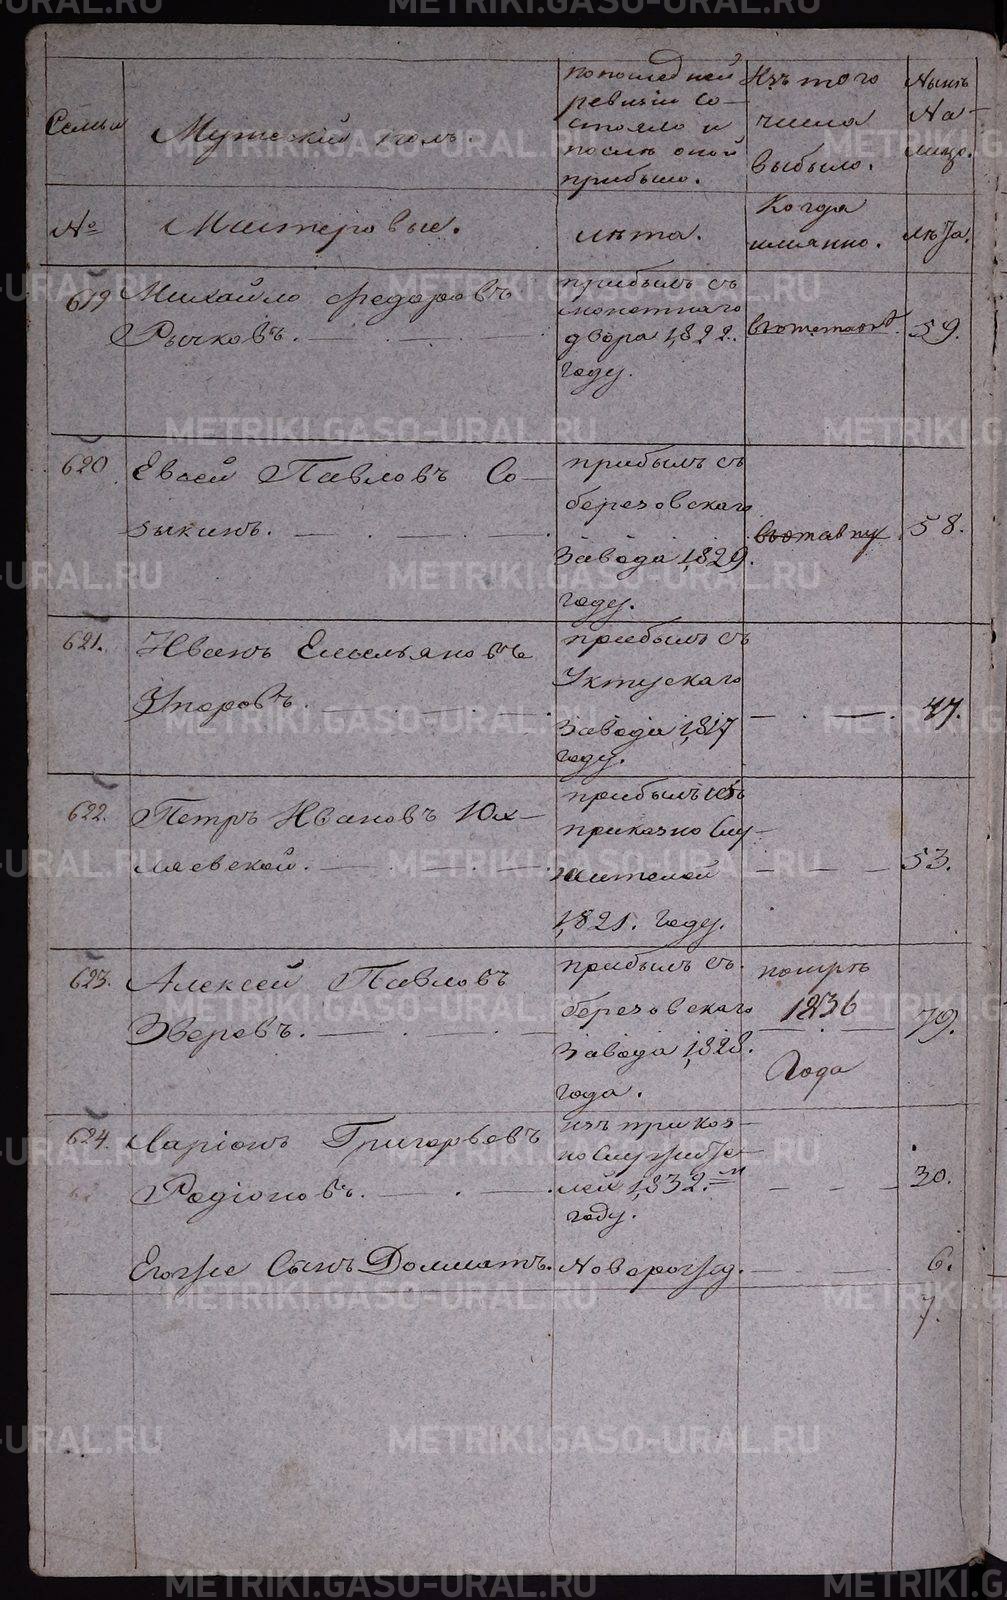 Семьи
Мужескій полъ
попоследней
ревизіи со-
стояло и
послѣ оной
прибыло.
Изъ того
числа
выбыло.
Нынѣ
На-
лицо.
№
Мастеровые.
лѣта.
Когда
имянно.
лѣта.
619 Михайло Федоровъ
Рычковъ.
прибылъ съ
монетнаго
двора 1822.
году.
въотставкѣ
59.
620 Евсей Павловъ Со-
зыкинъ.
прибылъ съ
березовскаго
завода 1829.
году.
въотставку
58.
621. Иванъ Емельяновъ
Упоровъ.
прибылъ съ
Уктускаго
завода 1817
году.
47.
622. Петръ Ивановъ Юх-
лаевской.
прибылъ изъ
приказно Слу-
жителей
1821. году.
53.
623. Алексей Павловъ
Зверевъ.
прибылъ съ
березовскаго
завода 1828.
года.
померъ
1836
Года
79.
624. Ларіонъ Григорьевъ
Родіоновъ.
изъ приказ-
нослужите-
лей 1832.м
году.
30.
Егоже Сынъ Долматъ.
Новорожд.
6.
7.
METRIKI.GASO-URAL.RU